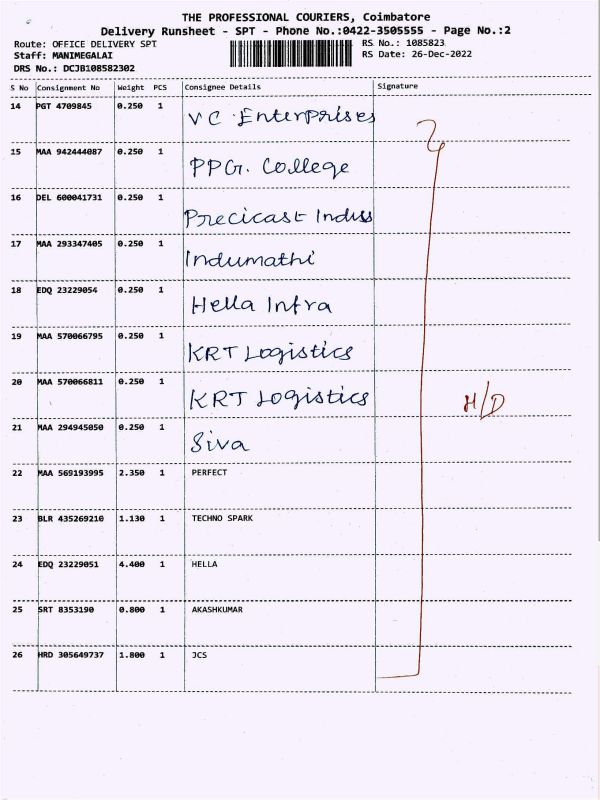 THE PROFESSIONAL COURIERS, Coimbatore
Delivery Runsheet - SPT - Phone No.:0422-3505555 - Page No.:2
Route: OFFICE DELIVERY SPT
Staff: MANIMEGALAI
DRS No.: DCJB108582302
RS No.: 1085823
RS Date: 26-Dec-2022
S No Consignment No Weight PCS Consignee Details Signature
14 PGT 4709845 0.250 1 VC Enterprises
15 MAA 942444087 0.250 1 PPG. College
16 DEL 600041731 0.250 1 Precicast Indus
17 MAA 293347405 0.250 1 Indumathi
18 EDQ 23229054 0.250 1 Hella Infra
19 MAA 570066795 0.250 1 KRT Logistics
20 MAA 570066811 0.250 1 KRT Logistics H/D
21 MAA 294945050 0.250 1 Siva
22 MAA 569193995 2.350 1 PERFECT
23 BLR 435269210 1.130 1 TECHNO SPARK
24 EDQ 23229051 4.400 1 HELLA
25 SRT 8353190 0.800 1 AKASHKUMAR
26 HRD 305649737 1.800 1 JCS